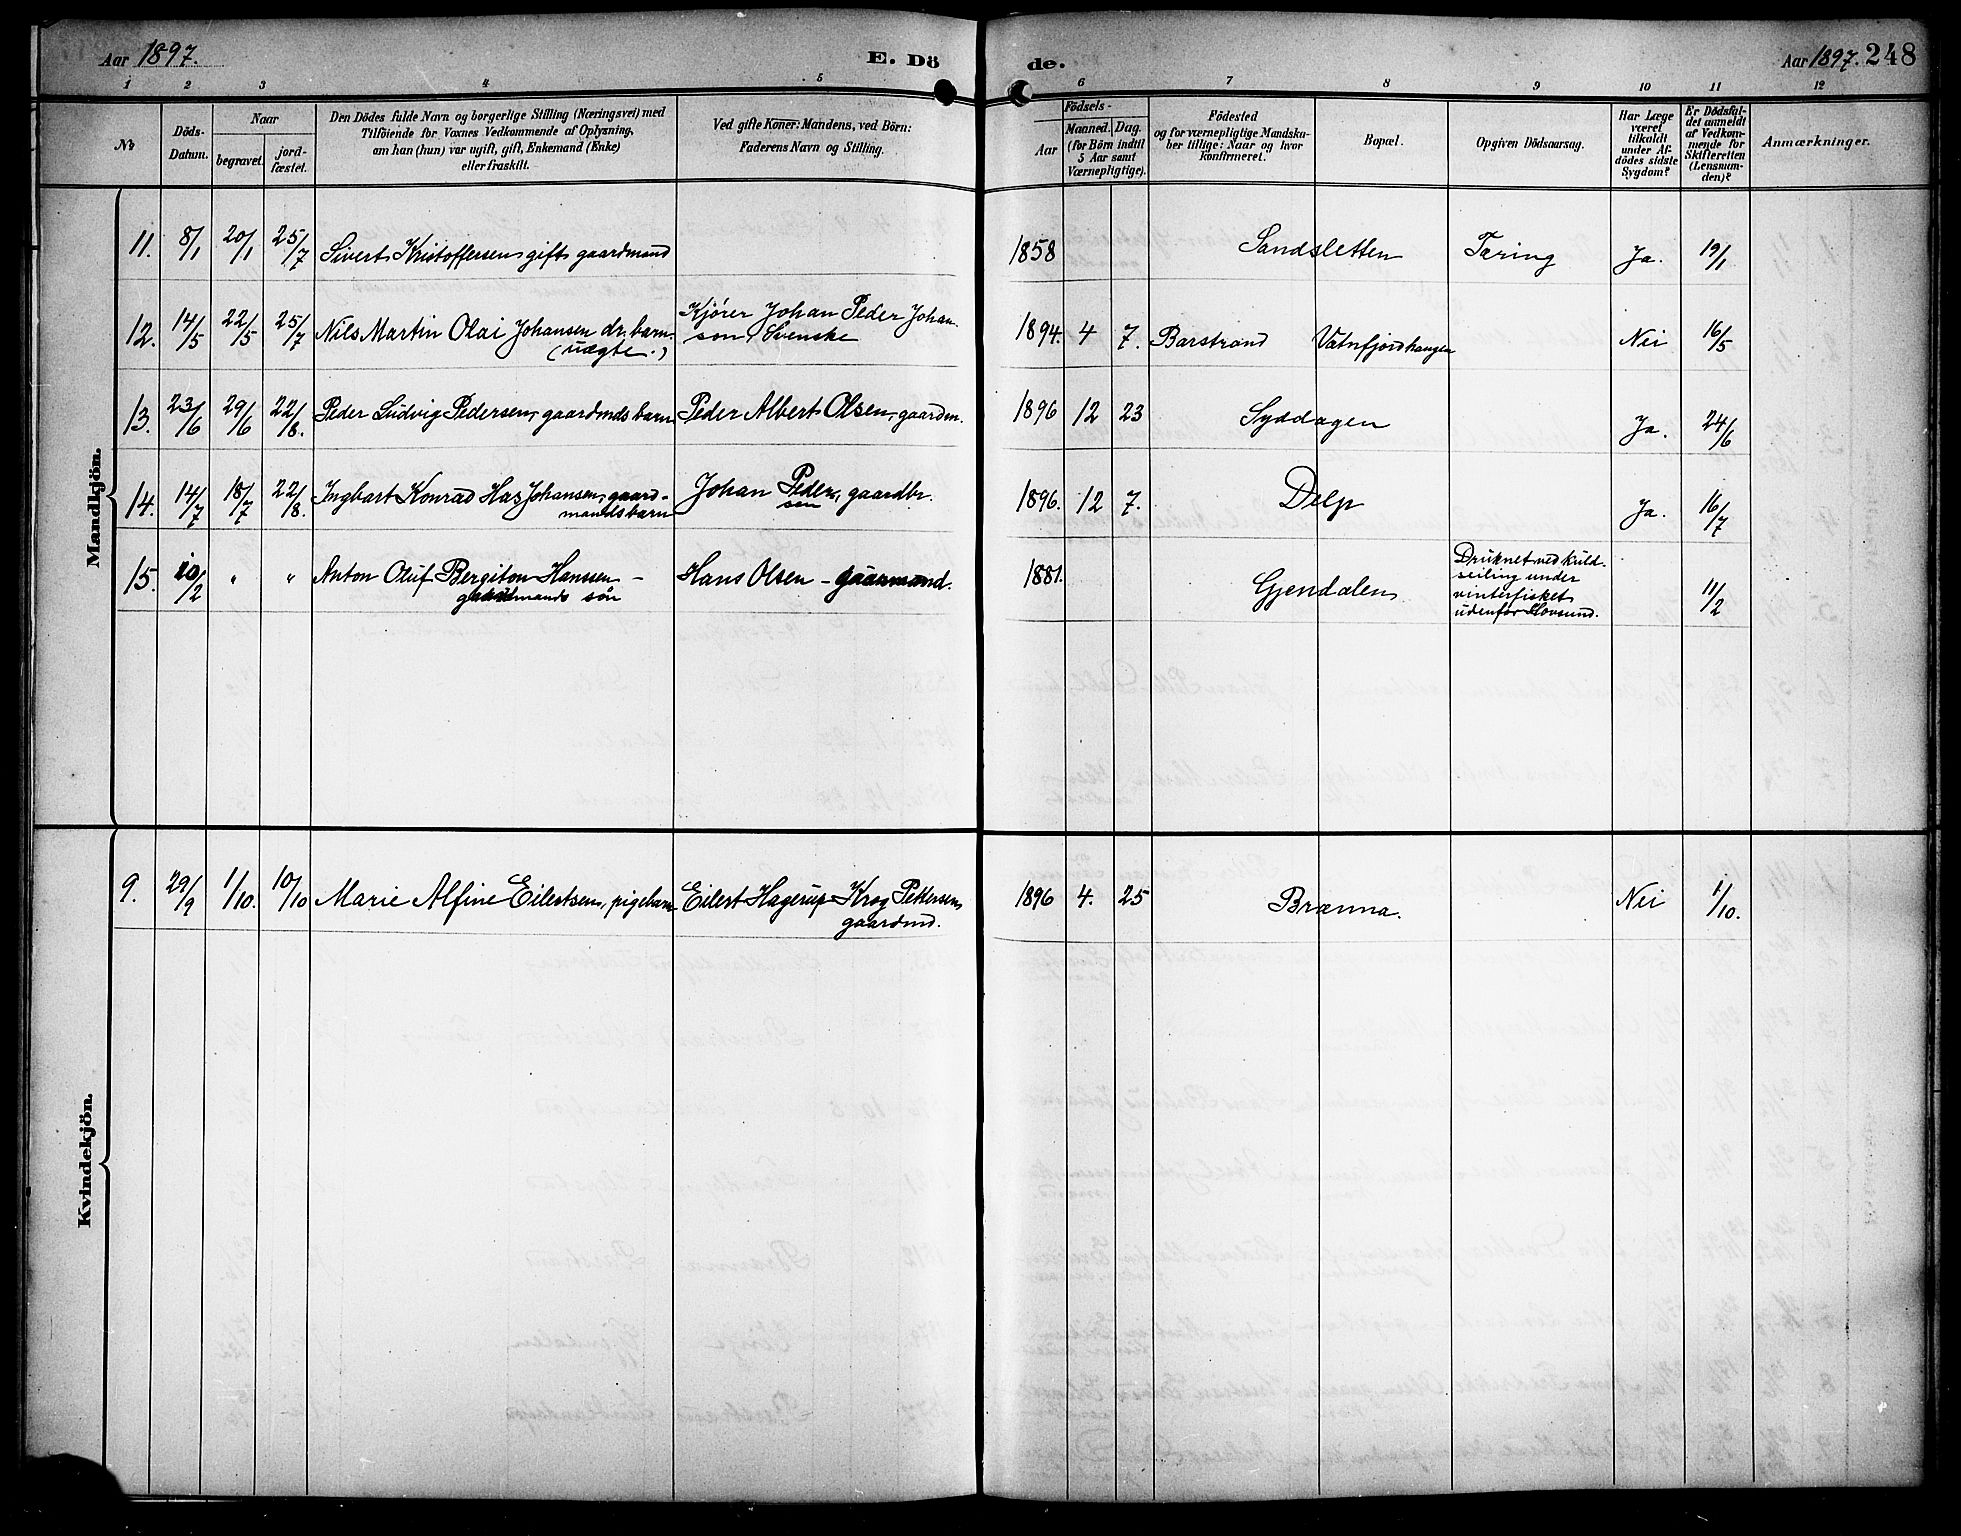 Aar 1897. E. Dö de. Aar 1897. 248
1 2 3 4 5 6 7 8 9 10 11 12
No
Döds-Datum.
Naar
begravet.
jord-fæstet.
Den Dödes fulde Navn og borgerlige Stilling (Næringsvei) med
Tilföiende for Voxnes Vedkommende af Oplysning,
om han (hun) var ugift, gift, Enkemand (Enke)
eller fraskilt.
Ved gifte Koner: Mandens, ved Börn:
Faderens Navn og Stilling.
Födsels-
Aar
Maaned. Dag.
(for Börn indtil
5 Aar samt
Værnepligtige).
Födested
og for værnepligtige Mandska-
ber tillige: Naar og hvor
konfirmeret.
Bopæl.
Opgiven Dödsaarsag.
Har Læge
været
tilkaldt
under Af-
dödes sidste
Sygdom?
Er Dödsfal-
det anmeldt
af Vedkom-
mende for
Skifteretten
(Lensmand-
den)?
Anmærkninger.
Mandkjön.
11. 8/1 20/1 25/7 Sivert Kristoffersen, gift gaardmand 1858 Sandsletten Tæring Ja. 19/1
12. 14/5 22/5 25/7 Nils Martin Olai Johansen dr. barn. Kjører Johan Peder Johan- 1894. 4 7. Barstrand Vatnfjordhaugen Nei 16/5
(uægte.) son Svenske
13. 23/6 29/6 22/8. Peder Ludvig Pedersen, gaardmds barn Peder Albert Olsen, gaardm. 1896 12 23 Syddagen Ja. 24/6
14. 14/7 18/7 22/8. Ingbart Konrad Johansen, gaard- Johan Peder, gaardbr. 1896. 12 7. Delp Ja. 16/7
mandsbarn sen
15. 10/2 " " Anton Oluf Bergiton Hanssen - Hans Olsen - gaarmand. 1881. Gjendalen 11/2
gaardmands søn
Druknet ved kuld-
seiling under
vinterfisket
udenfor Hovsund.
Kvindekjön.
9. 29/9 1/10. 10/10 Marie Alfine Eilertsen, pigebarn Eilert Hagerup Krog Pettersen 1896 4. 25 Brænna. Nei 1/10.
gaardmd.